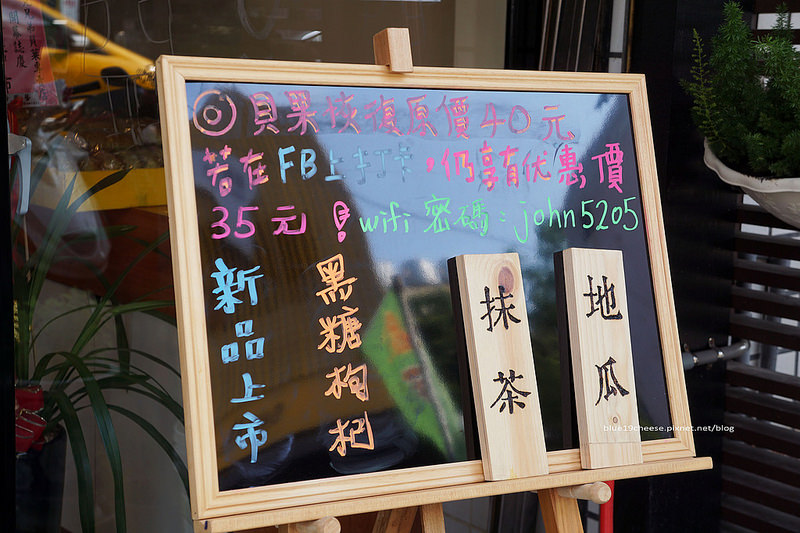 ◎貝果恢復原價40元
若在FB上打卡,仍享有优惠價
35元!wifi密碼:john5205
新品上市
黑糖枸杞
抹茶
地瓜
blue19cheese.pixnet.net/blog